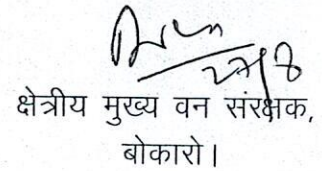 क्षेत्रीय मुख्य वन संरक्षक,
बोकारो।